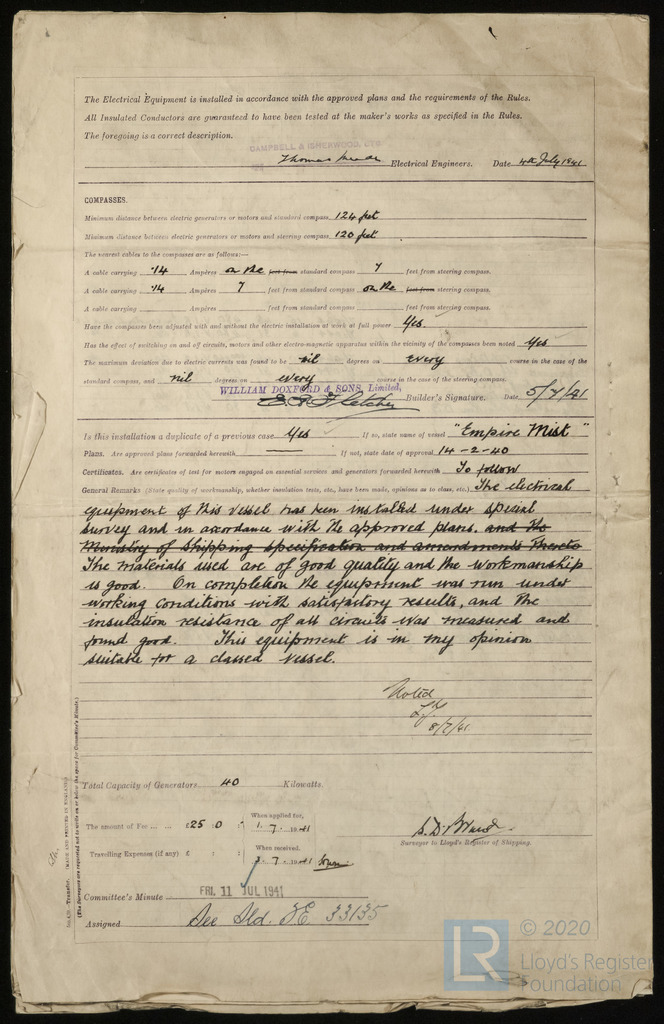 The Electrical Equipment is installed in accordance with the approved plans and the requirements of the Rules.
All Insulated Conductors are guaranteed to have been tested at the maker's works as specified in the Rules.
The foregoing is a correct description.
CAMPBELL & ISHERWOOD, LTD
Thomas Electrical Engineers. Date 4th July 1941
COMPASSES.
Minimum distance between electric generators or motors and standard compass 124 feet
Minimum distance between electric generators or motors and steering compass 120 feet
The nearest cables to the compasses are as follows:—
A cable carrying .14 Ampères on the feet from standard compass 7 feet from steering compass.
A cable carrying .14 Ampères 7 feet from standard compass on the feet from steering compass.
A cable carrying Ampères feet from standard compass feet from steering compass.
Have the compasses been adjusted with and without the electric installation at work at full power Yes.
Has the effect of switching on and off circuits, motors and other electro-magnetic apparatus within the vicinity of the compasses been noted Yes
The maximum deviation due to electric currents was found to be nil degrees on every course in the case of the
standard compass, and nil degrees on every course in the case of the steering compass.
WILLIAM DOXFORD & SONS, Limited,
Fletcher Builder's Signature. Date 5/7/41
Is this installation a duplicate of a previous case Yes If so, state name of vessel "Empire Mist"
Plans. Are approved plans forwarded herewith — If not, state date of approval 14-2-40
Certificates. Are certificates of test for motors engaged on essential services and generators forwarded herewith To follow
General Remarks (State quality of workmanship, whether insulation tests, etc., have been made, opinions as to class, etc.) The electrical
equipment of this vessel has been installed under special
survey and in accordance with the approved plans. and the
Ministry of Shipping specification and amendments thereto
The materials used are of good quality and the workmanship
is good. On completion the equipment was run under
working conditions with satisfactory results, and the
insulation resistance of all circuits was measured and
found good. This equipment is in my opinion
suitable for a classed vessel.
Noted
8/7/41
Total Capacity of Generators 40 Kilowatts.
The amount of Fee ... ... £25 : 0 : When applied for, 1.7.1941
Surveyor to Lloyd's Register of Shipping.
Travelling Expenses (if any) £ : : When received, 7.1941
Committee's Minute FRI. 11 JUL 1941
Assigned See Sld. FE 33135
(The Surveyors are requested not to write on or below the space for Committee's Minute.)
MADE AND PRINTED IN ENGLAND
Transfer.
LR
© 2020
Lloyd's Register
Foundation